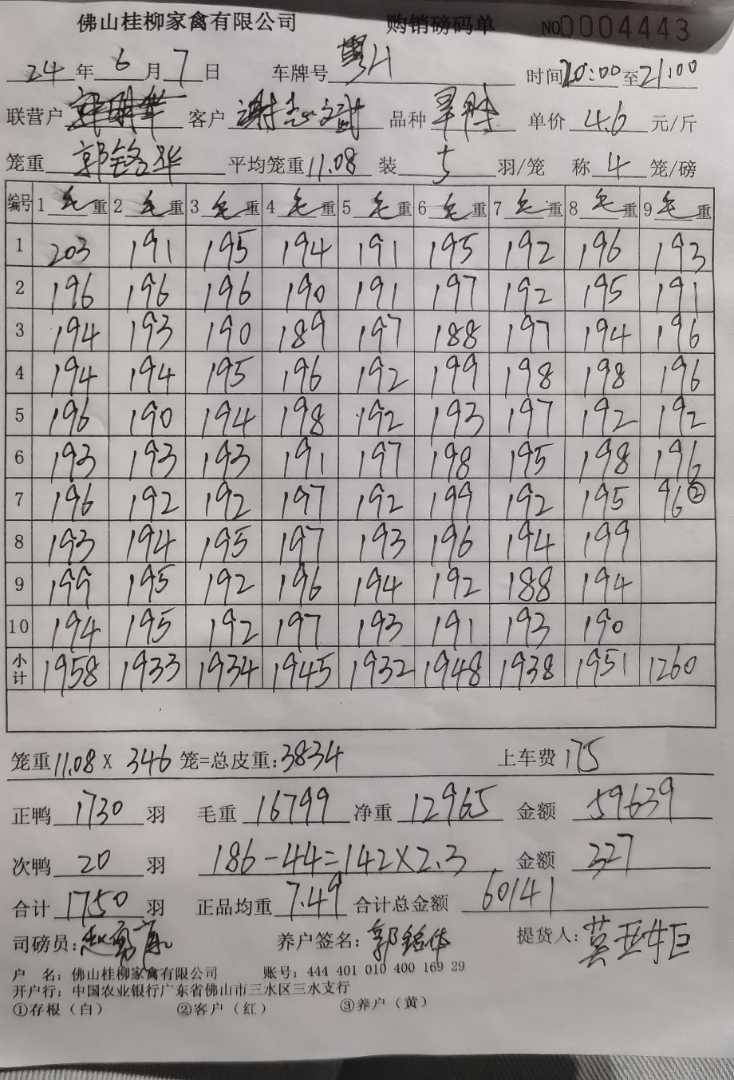 佛山桂柳家禽有限公司 购销磅码单 NO0004443
24 年 6 月 7 日 车牌号 时间 20:00 至 21:00
联营户 客户 谢志斌 品种 单价 4.6 元/斤
笼重 郭铭华 平均笼重 11.08 装 5 羽/笼 称 4 笼/磅
编号 1 毛重 2 毛重 3 毛重 4 毛重 5 毛重 6 毛重 7 毛重 8 毛重 9 毛重
1 203 191 195 194 191 195 192 196 193
2 196 196 196 190 191 197 192 195 191
3 194 193 190 189 197 188 197 194 196
4 194 194 195 196 192 199 198 198 196
5 196 190 194 198 192 193 197 192 192
6 193 193 193 191 197 198 195 198 196
7 196 192 192 197 192 199 192 195 96②
8 193 194 195 197 193 196 194 199
9 199 195 192 196 194 192 188 194
10 194 195 192 197 193 191 193 190
小计 1958 1933 1934 1945 1932 1948 1938 1951 1260
笼重 11.08 X 346 笼=总皮重: 3834 上车费 175
正鸭 1730 羽 毛重 16799 净重 12965 金额 59639
次鸭 20 羽 186-44=142×2.3 金额 327
合计 1750 羽 正品均重 7.49 合计总金额 60141
司磅员: 养户签名: 郭铭华 提货人:
户 名: 佛山桂柳家禽有限公司 账号: 444 401 010 400 169 29
开户行: 中国农业银行广东省佛山市三水区三水支行
①存根（白） ②客户（红） ③养户（黄）